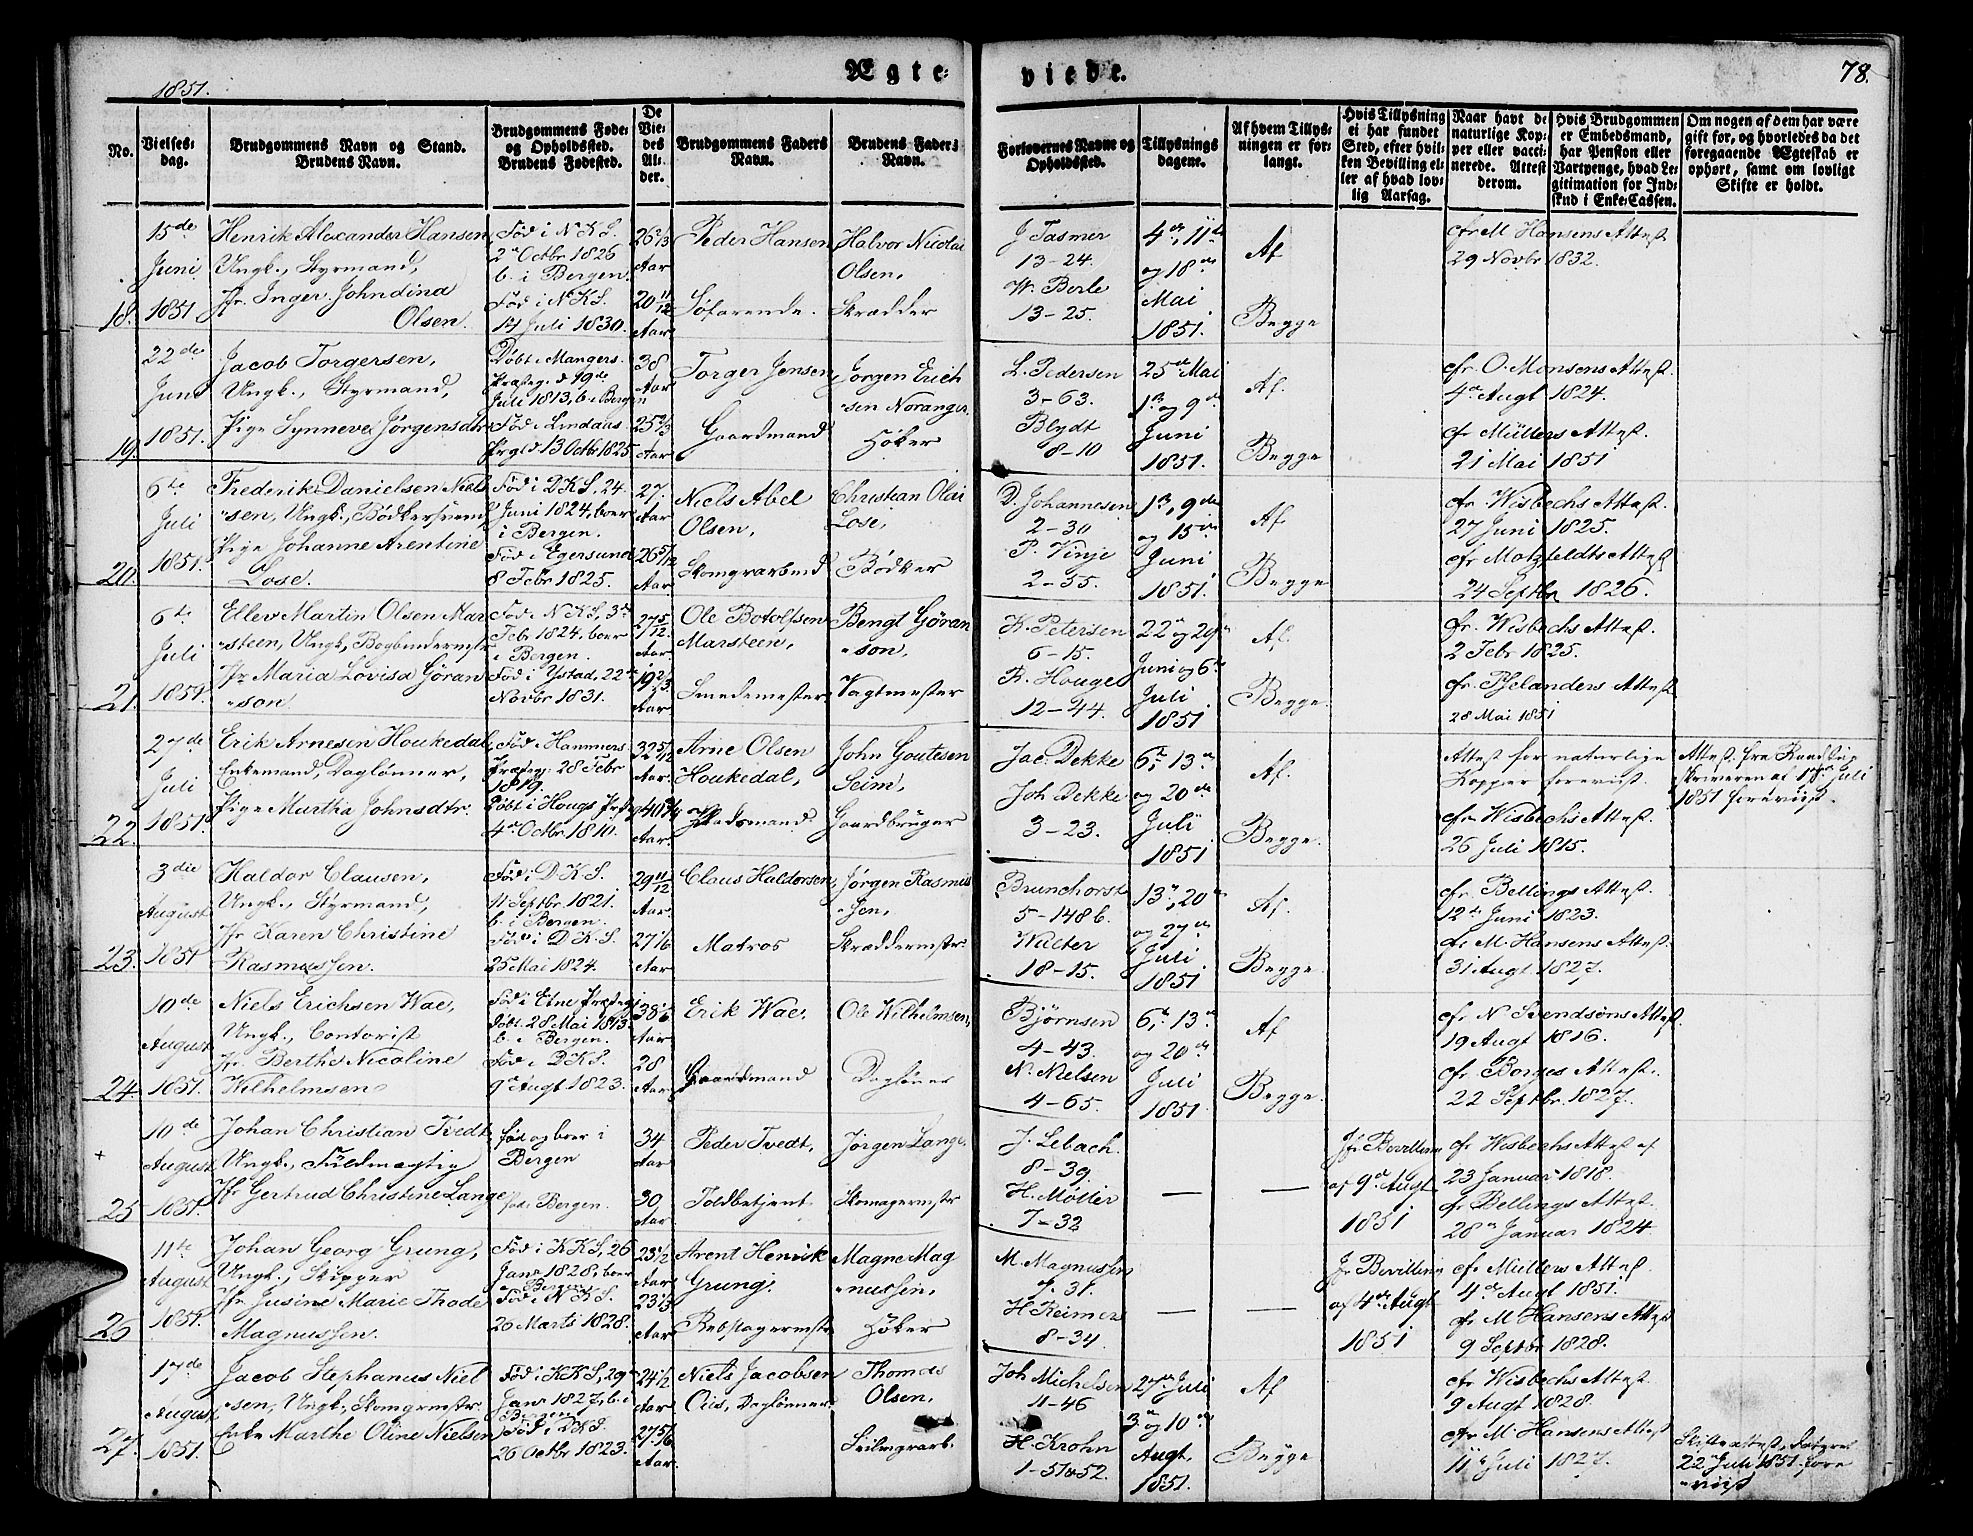 1851.
Ægte-
viede.
78.
No.
Vielses-
dag.
Brudgommens Navn og Stand.
Brudens Navn.
Brudgommens Føde-
og Opholdssted.
Brudens Fødested.
De
Vie-
des
Al-
der.
Brudgommens Faders
Navn.
Brudens Faders
Navn.
Forlovernes Navne og
Opholdssted.
Tillysnings
dagene.
Af hvem Tillys-
ningen er for-
langt.
Hvis Tillysning
ei har fundet
Sted, efter hvil-
ken Bevilling el-
ler af hvad lov-
lig Aarsag.
Naar havt de
naturlige Kop-
per eller vacci-
nerede. Attest
derom.
Hvis Brudgommen
er Embedsmand,
har Pension eller
Vartpenge, hvad Le-
gitimation for Ind-
skud i Enke-Cassen.
Om nogen af dem har være
gift før, og hvorledes da det
foregaaende Ægteskab er
ophørt, samt om lovligt
Skifte er holdt.
18.
15de
Juni
1851
Henrik Alexander Hansen
Ungk., Styrmand,
Jfr. Inger Johndina
Olsen.
Fød i N.K.S.
2 Octbr 1826
b. i Bergen.
Fød i N.K.S.
14 Juli 1830.
26 2/3
Aar
20 11/12
Aar
Peder Hansen
Søfarende.
Halvor Nicolai
Olsen,
Skrædder
J Tasmer
13-24.
W. Berle
13-25.
4de, 11te
og 18de
Mai
1851.
Af
Begge
cfr M Hansens Attest
29 Novbr 1832.
19.
22de
Juni
1851.
Jacob Torgersen,
Ungk., Styrmand,
Pige Synneve Jørgensdtr
Døbt i Mangers
Præsteg. d 19de
Juli 1813, b. i Bergen
Fød i Lindaas
Prgld 13 Octbr 1825
38
Aar
25 2/3
Aar
Torger Jensen
Gaardmand
Jørgen Erich
-sen Noranger.
Høker
L. Pedersen
3-63.
Blydt
8-10
25de Mai
1ste og 9de
Juni
1851.
Af.
Begge
cfr O. Monsens Attest.
4de Augt 1824.
cfr Müllers Attest.
21 Mai 1851
20.
6te
Juli
1851.
Frederik Danielsen Niels
-sen, Ungk., Bødkersvend
Pige Johanne Arentine
Lose.
Fød i D.K.S, 24.
Juni 1824, boer
i Bergen.
Fød i Egersund
8 Febr 1825.
27
Aar
26 5/12
Aar
Niels Abel
Olsen,
Skomgrarbeid
Christian Olai
Lose,
Bødker
D. Johannesen
2-30
P. Vinje
2-55.
1ste, 9de
og 15de
Juni
1851.
Af.
Begge
cfr Wisbechs Attest.
27 Juni 1825.
cfr Motzfeldts Attest
24 Septbr 1826.
21.
6te
Juli
1851.
Ellev Martin Olsen Mar
-steen, Ungk, Bogbindermstr
Jfr Maria Lovisa Göran
-son
Fød i N.K.S, 3de
Feb 1824, boer
i Bergen.
Fød i Ystad, 22de
Novbr 1831.
27 5/12
Aar.
19 2/3
Aar.
Ole Botolfsen
Marsteen,
Smedemester
Bengt Göran
-son,
Vagtmester
K. Petersen
6-15.
R. Houge
12-44.
22de og 29de
Juni og 6te
Juli
1851
Af.
Begge.
cfr. Wisbechs Attest.
2 Febr 1825.
28 Mai 1851
22.
27de
Juli
1851.
Erik Arnesen Houkedal,
Enkemand, Dagløner,
Pige Martha Johnsdtr.
Fød i Hammers
Præsteg: 28 Febr
1819.
Døbt i Hougs Prstg
4de Octbr 1810.
32 5/12
Aar.
40 3/4
Aar.
Arne Olsen
Houkedal,
Pladsmand
John Goutesen
Seim,
Gaardbruger
Jac. Dekke
Joh Dekke
3-23.
6te, 13de
og 20de
Juli
1851
Af.
Begge.
Attest for naturlige
Kopper forevist.
cfr Wisbechs Attest.
26 Juli 1815.
Attest fra Raadstue
skriveren af 17de Juli
1851 forevist.
23.
3die
August
1851
Haldor Clausen,
Ungk., Styrmand,
Jfr Karen Christine
Rasmussen.
Fød i D.K.S.
11 Septbr 1821.
b. i Bergen.
Fød i D.K.S.
25 Mai 1824.
29 11/12
Aar.
27 1/6
Aar
Claus Haldorsen,
Matros
Jørgen Rasmus
-sen,
Skræddermstr.
Brunchorst
5-148 b.
Walter
18-15.
13de, 20de
og 27de
Juli
1851
Af.
Begge.
cfr. Bellings Attest.
12te Juni 1823.
cfr M. Hansens Attest.
31 Augt 1827.
24.
10de
August
1851.
Niels Erichsen Wae,
Ungk., Contorist
Jfr. Berthe Nicoline
Wilhelmsen
Fød i Etne Præsteg:
døbt 28 Mai 1813.
b. i Bergen.
Fød i D.K.S.
9de Augt 1823.
38 1/6
Aar
28
Aar
Erik Wae,
Gaardmand
Ole Wilhelmsen,
Dagløner
Bjørnsen
4-43.
N. Nielsen
4-65.
6te, 13de
og 20de
Juli
1851.
Af
Begge.
cfr N Svendsøns Attest.
19 Augt 1816.
cfr Borges Attest.
22 Septbr. 1827.
+
25
10de
August
1851.
Johan Christian Tvedt,
Ungk., Fuldmægtig
Jfr Gertrud Christine Lange
fød og boer i
Bergen
fød i Bergen.
34
Aar
30
Aar
Peder Tvedt,
Toldbetjent
Jørgen Lange,
Skomagermstr
J. Lebach.
8-39.
H. Møller
7-32
—
—
Jfr Bevilling
af 9de Augt
1851
cfr Wisbechs Attest af
23 Januar 1818.
cfr Bellings Attest.
28de Januar 1824.
26
11te
August
1851.
Johan Georg Grung,
Ungk., Skipper
Jfr Jusine Marie Thode
Magnussen.
Fød i K.K.S, 26
Janr 1828, boer
i Bergen
Fød i N.K.S.
26 Marts 1828.
23 1/2
Aar
23 1/3
Aar
Arent Henrick
Grung.
Rebslagermstr
Magne Mag
-nussen,
Høker
M. Magnussen
9-31.
H Reimers
8-34.
—
—
Jfr Bevilling
af 4de Augt
1851
cfr Müllers Attest.
4de Augt 1851.
cfr M Hansens Attest
9 Septbr 1828.
27.
17de
August
1851.
Jacob Stephanus Niel
-sen, Ungk., Skomgrmstr.
Enke Marthe Oline Nielsen
Fød i K.K.S, 29de
Janr 1827, b. i
Bergen
Fød i D.K.S.
26 Octbr 1823.
24 1/2
Aar
27 5/6
Aar.
Niels Jacobsen
Dagløner.
Thomas
Olsen,
Seilmgrarb.
Joh Michelsen
11-46
H. Krohn
1-51&52.
27de Juli
3de og 10de
Augt,
1851.
Af
Begge
cfr Wisbechs Attest.
9 Augt 1828.
cfr M. Hansens Attest
11te Juli 1827.
Skifteattest, dateret
22 Juli 1851 fore
-viist